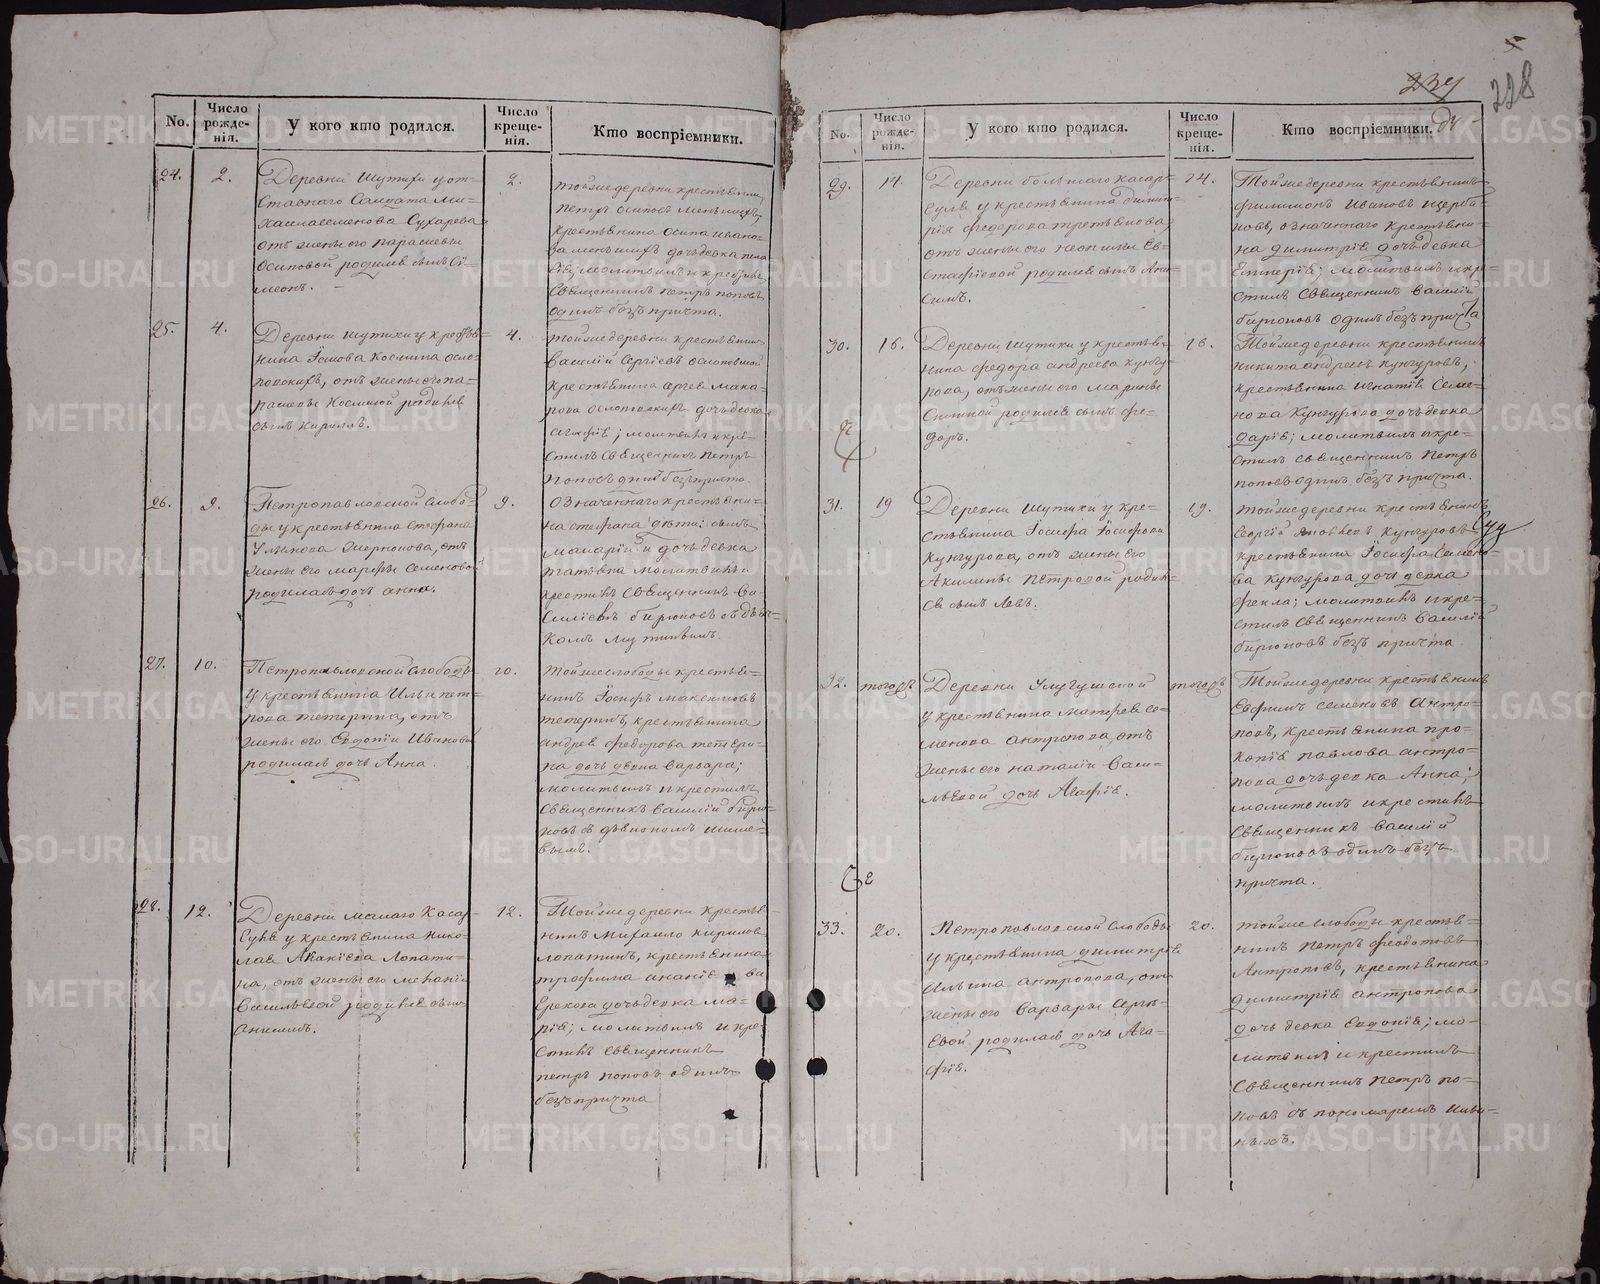 5
239
228
No.
Число рожде-нія.
У кого кто родился.
Число креще-нія.
Кто воспріемники.
24.
2.
Деревни Шутихи у от-
ставнаго Солдата Ми-
Сухарева
отъ жены его Парасковьи
Осиповой родился сынъ Си-
меонъ.
2.
тойже деревни крестьянинъ
Петръ Осиповъ
крестьянина Осипа Ивано-
ва дочь девка
молитвилъ и крестилъ
Священникъ Петръ Поповъ
одинъ безъ причта.
25.
4.
Деревни Шутихи у крестья-
нина Космина
отъ жены его Па-
расковьи родился
сынъ Кирилъ.
4.
тойже деревни крестьянинъ
Василій Сергіевъ
крестьянина Сергея Мака-
рова дочь девка
Агафія; молитвилъ и кре-
стилъ Священникъ Петръ
Поповъ одинъ безъ причта.
26.
9.
Петропавловской Слобо-
ды у крестьянина Стефана
отъ
жены его Марфы Семеновой
родилась дочь Анна.
9.
Означеннаго крестьяни-
на Стефана дети: сынъ
Макарій и дочь девка
Татьяна молитвилъ и
крестилъ Священникъ Ва-
силій Бирюковъ съ дья-
комъ
27.
10.
Петропавловской Слободы
у крестьянина Ильи Пет-
рова Тетерина, отъ
жены его Евдокіи Ивановой
родилась дочь Анна.
10.
Тойже слободы крестья-
нинъ Іосифъ Максимовъ
Тетеринъ, крестьянина
Андрея Федорова Тетери-
на дочь девка Варвара;
молитвилъ и крестилъ
Священникъ Василій Бирю-
ковъ съ дьякономъ
28.
12.
Деревни Малаго Касар-
гуля у крестьянина Нико-
лая Лопати-
на, отъ жены его Меланіи
Васильевой родился сынъ
12.
Тойже деревни крестья-
нинъ Михайло Кириловъ
Лопатинъ, крестьянина
Трофима
дочь девка Ма-
рія; молитвилъ и кре-
стилъ Священникъ
Петръ Поповъ одинъ
безъ причта
No.
Число рожде-нія.
У кого кто родился.
Число креще-нія.
Кто воспріемники.
29.
14.
Деревни большаго Касар-
гуля у крестьянина Димит-
рія Федорова Третьякова,
отъ жены его Неонилы Ев-
стафіевой родился сынъ Они-
симъ.
14.
Тойже деревни крестьянинъ
Филимонъ Ивановъ Щерба-
ковъ, означеннаго крестьяни-
на Димитрія дочь девка
молитвилъ и кре-
стилъ Священникъ Василій
Бирюковъ одинъ безъ причта
30.
16.
Деревни Шутихи у крестья-
нина Федора Андреева Кунгу-
рова, отъ жены его Марины
родился сынъ Фе-
доръ.
16.
Тойже деревни крестьянинъ
Никита Андреевъ Кунгуровъ;
крестьянина Игнатія Семе-
нова Кунгурова дочь девка
Дарія; молитвилъ и кре-
стилъ Священникъ Петръ
Поповъ одинъ безъ причта.
31.
19
Деревни Шутихи у кре-
стьянина Іосифа Іосифова
Кунгурова, отъ жены его
Акилины Петровой родил-
ся сынъ Левъ.
19.
тойже деревни крестьянинъ
Георгій Яковлевъ Кунгуровъ
крестьянина Іосифа Семено-
ва Кунгурова дочь девка
Фекла; молитвилъ и кре-
стилъ Священникъ Василій
Бирюковъ безъ причта.
32.
тогожъ
Деревни
у крестьянина Матфея Се-
менова Антропова, отъ
жены его Наталіи Васи-
льевой дочь Агафія.
тогожъ
Тойже деревни крестьянинъ
Евфимъ Семеновъ Антро-
повъ, крестьянина Про-
копія Павлова Антро-
пова дочь девка Анна;
молитвилъ и крестилъ
Священникъ Василій
Бирюковъ одинъ безъ
причта.
33.
20.
Петропавловской Слободы
у крестьянина Димитрія
Ильина Антропова, отъ
жены его Варвары Серге-
евой родилась дочь Ага-
фія.
20.
тойже слободы крестья-
нинъ Петръ Федотовъ
Антроповъ, крестьянина
Димитрія Антропова
дочь девка Евдокія; мо-
литвилъ и крестилъ
Священникъ Петръ По-
повъ съ пономаремъ